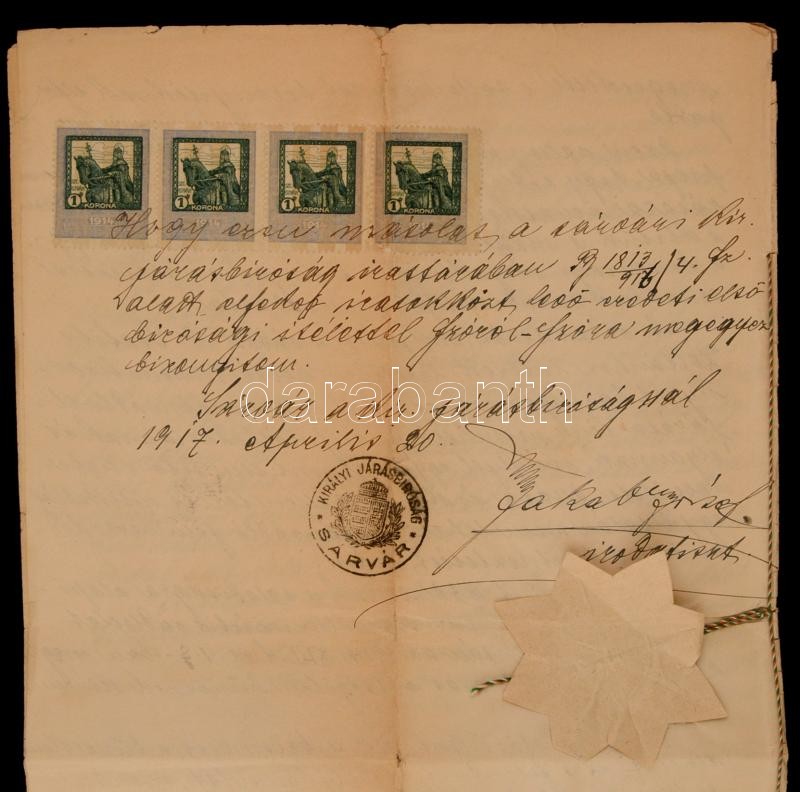 1 KORONA 1914 1 KORONA 1914 1 KORONA 1 KORONA
Hogy ezen másolat, a sárvári kir.
járásbiróság irattárában B 1813/916/4. sz.
alatt elfekvő iratok közt levő eredeti első
birósági itélettel szóról-szóra megegyez
bizonyitom.
darabanth
Sárvár, a kir. járásbiróságnál
1917. Április 20.
KIRÁLYI JÁRÁSBIRÓSÁG
* SÁRVÁR *
Jakabu József
irodatiszt